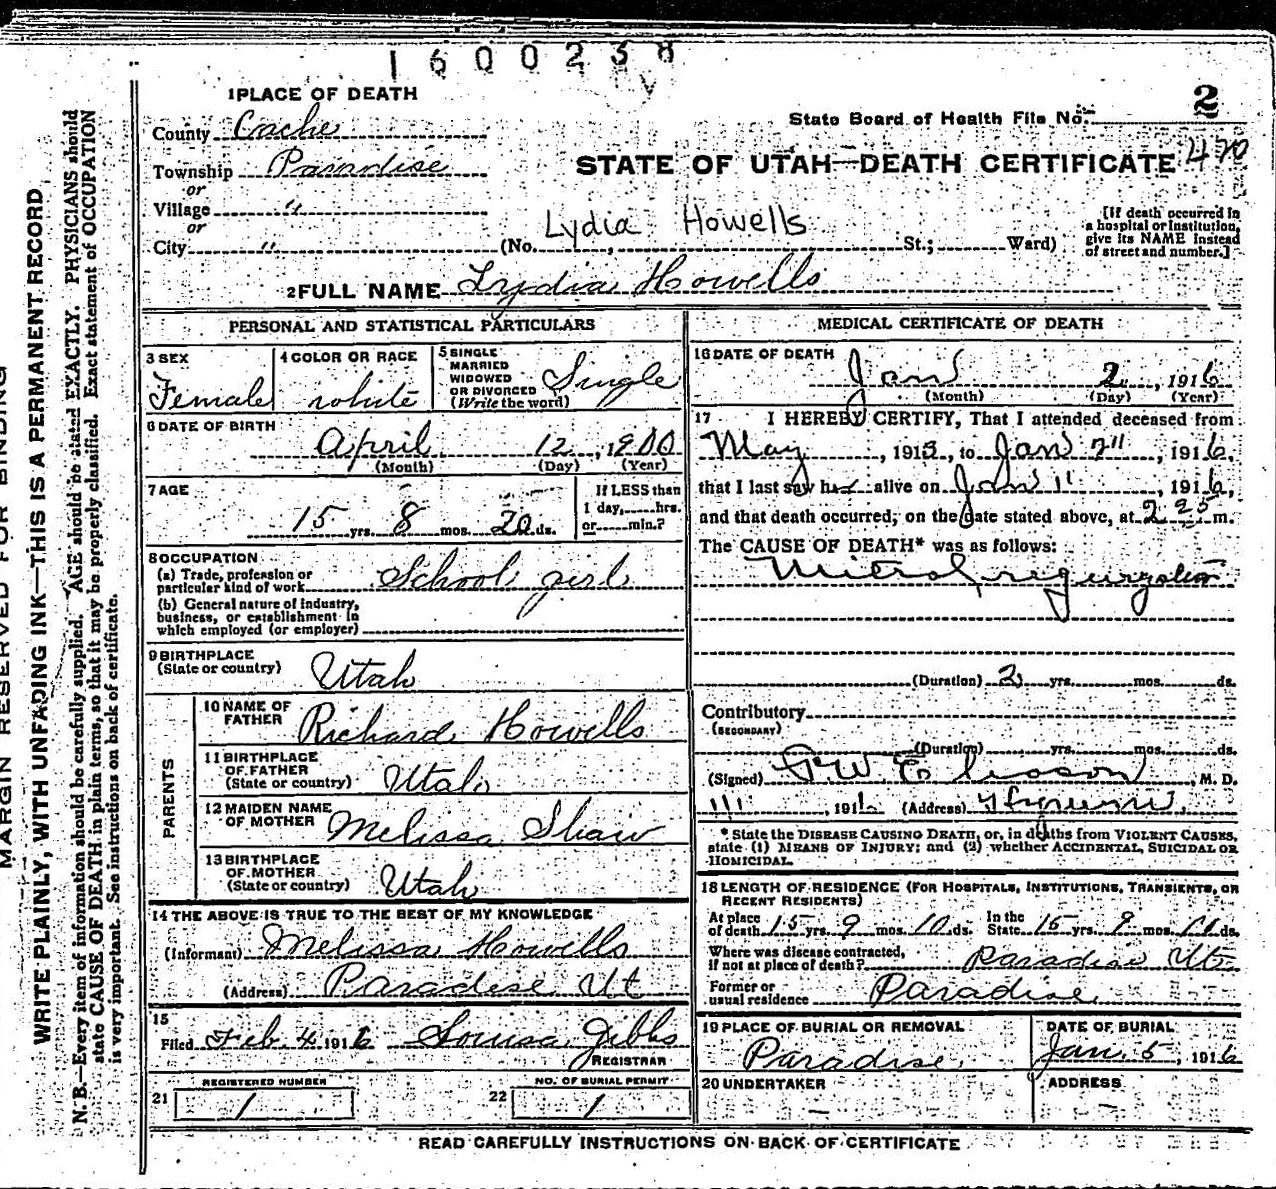 1600238
2
1 PLACE OF DEATH
County Cache
State Board of Health File No.
Township Paradise
STATE OF UTAH—DEATH CERTIFICATE 470
or
Village "
or
City " (No. St.; Ward)
Lydia Howells
[If death occurred in
a hospital or institution,
give its NAME instead
of street and number.]
2 FULL NAME Lydia Howells
PERSONAL AND STATISTICAL PARTICULARS
3 SEX
Female
4 COLOR OR RACE
white
5 SINGLE
MARRIED
WIDOWED
OR DIVORCED
(Write the word)
Single
6 DATE OF BIRTH
April 12, 1900
(Month) (Day) (Year)
7 AGE
15 yrs. 8 mos. 20 ds.
If LESS than
1 day, hrs.
or min.?
8 OCCUPATION
(a) Trade, profession or
particular kind of work School girl
(b) General nature of industry,
business, or establishment in
which employed (or employer)
9 BIRTHPLACE
(State or country) Utah
PARENTS
10 NAME OF
FATHER Richard Howells
11 BIRTHPLACE
OF FATHER
(State or country) Utah
12 MAIDEN NAME
OF MOTHER Melissa Shaw
13 BIRTHPLACE
OF MOTHER
(State or country) Utah
14 THE ABOVE IS TRUE TO THE BEST OF MY KNOWLEDGE
(Informant) Melissa Howells
(Address) Paradise Ut
15
Filed Feb. 4 1916 Louisa Gibbs
REGISTRAR
REGISTERED NUMBER
21 1
NO. OF BURIAL PERMIT
22 1
MEDICAL CERTIFICATE OF DEATH
16 DATE OF DEATH
Jan 2, 1916
(Month) (Day) (Year)
17 I HEREBY CERTIFY, That I attended deceased from
May, 1913, to Jan, 1916,
that I last saw her alive on Jan 1", 1916,
and that death occurred, on the date stated above, at 2 25 m.
The CAUSE OF DEATH* was as follows:
Mitral regurgitation
(Duration) 2 yrs. mos. ds.
Contributory
(SECONDARY)
(Duration) yrs. mos. ds.
(Signed) M. D.
191 (Address)
* State the DISEASE CAUSING DEATH, or, in deaths from VIOLENT CAUSES,
state (1) MEANS OF INJURY; and (2) whether ACCIDENTAL, SUICIDAL OR
HOMICIDAL.
18 LENGTH OF RESIDENCE (FOR HOSPITALS, INSTITUTIONS, TRANSIENTS, OR
RECENT RESIDENTS)
At place
of death 15 yrs. 9 mos. 10 ds.
In the
State 15 yrs. 9 mos. ds.
Where was disease contracted,
if not at place of death? Paradise Ut.
Former or
usual residence Paradise
19 PLACE OF BURIAL OR REMOVAL
Paradise
DATE OF BURIAL
Jan. 5, 1916
20 UNDERTAKER
—
ADDRESS
—
READ CAREFULLY INSTRUCTIONS ON BACK OF CERTIFICATE
MARGIN RESERVED FOR BINDING
WRITE PLAINLY, WITH UNFADING INK—THIS IS A PERMANENT RECORD
N. B.—Every item of information should be carefully supplied. AGE should be stated EXACTLY. PHYSICIANS should
state CAUSE OF DEATH in plain terms, so that it may be properly classified. Exact statement of OCCUPATION
is very important. See instructions on back of certificate.